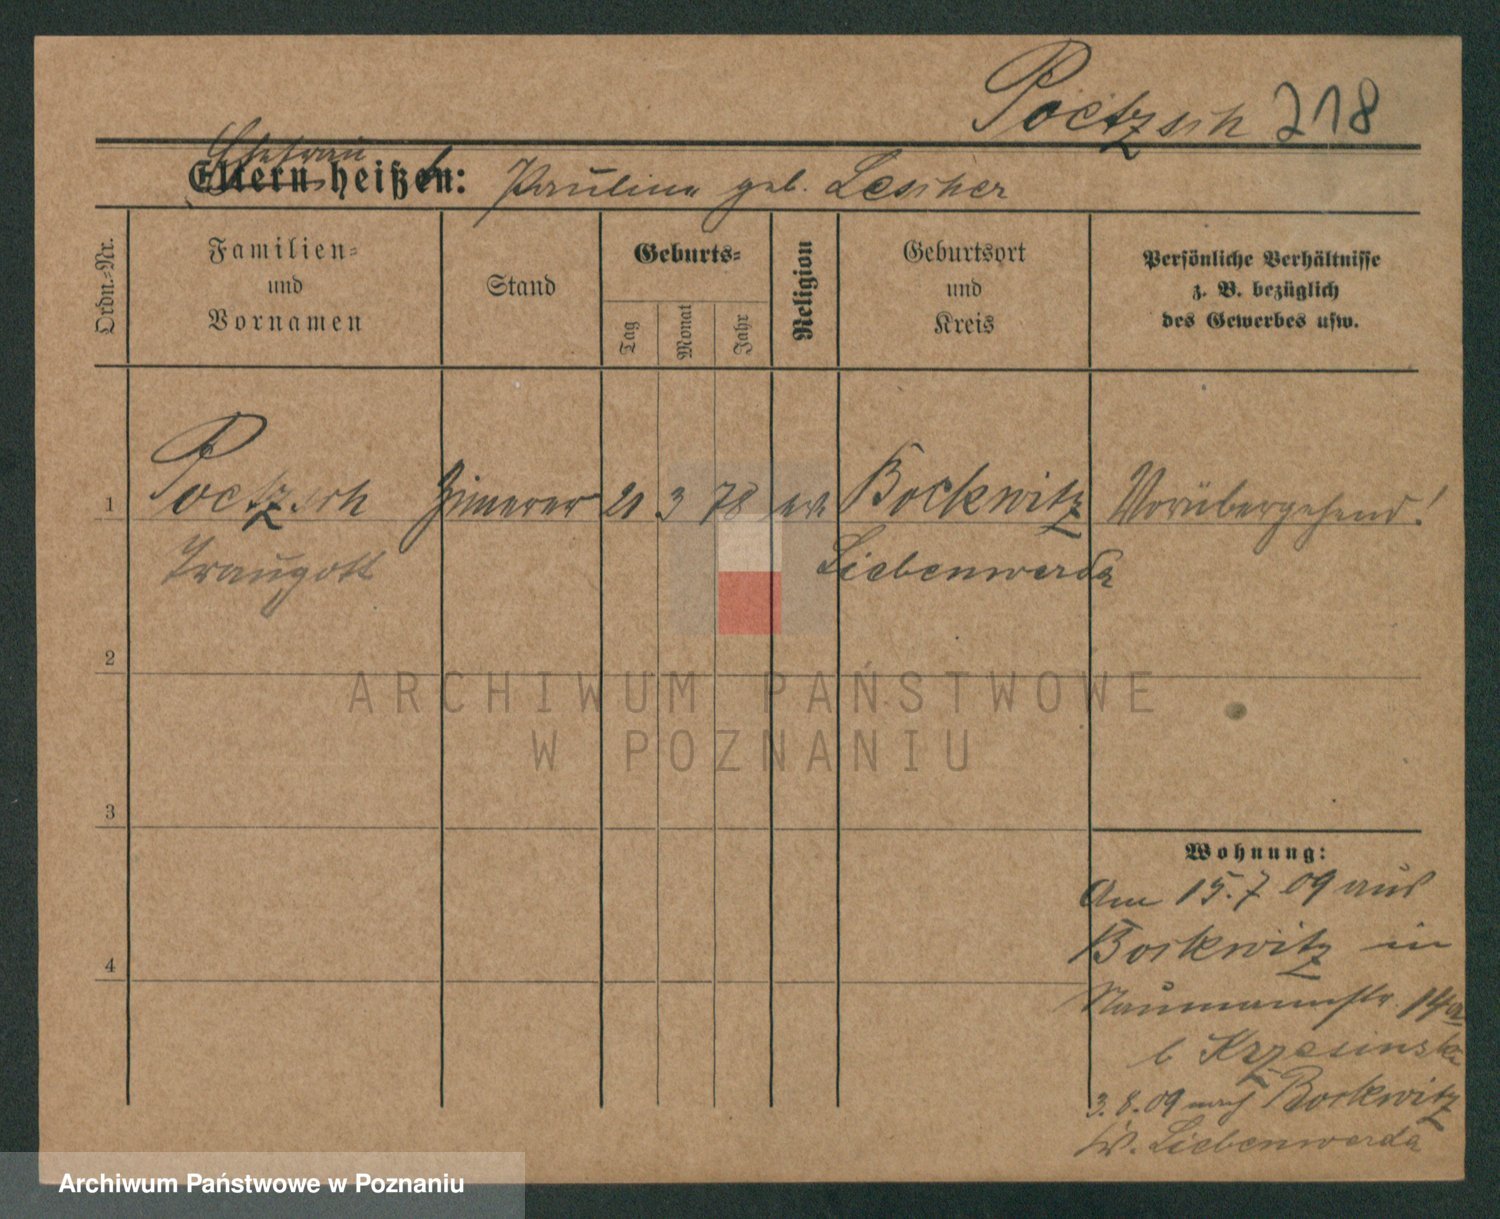 Poetzsch 218
Ehefrau
Eltern heißen: Pauline geb. Lescher
Ordn.-Nr.
Familien-
und
Vornamen
Stand
Geburts-
Tag
Monat
Jahr
Religion
Geburtsort
und
Kreis
Persönliche Verhältnisse
z. B. bezüglich
des Gewerbes usw.
1
Poetzsch
Traugott
Zimerer
21
3
78
Bockwitz
Liebenwerda
Vorübergehend!
2
3
4
Wohnung:
Am 15.7 09 aus
Bockwitz in
Naumannstr. 14a
b Krzesinska
3.8.09 nach Bockwitz
Liebenwerda
ARCHIWUM PAŃSTWOWE
W POZNANIU
Archiwum Państwowe w Poznaniu